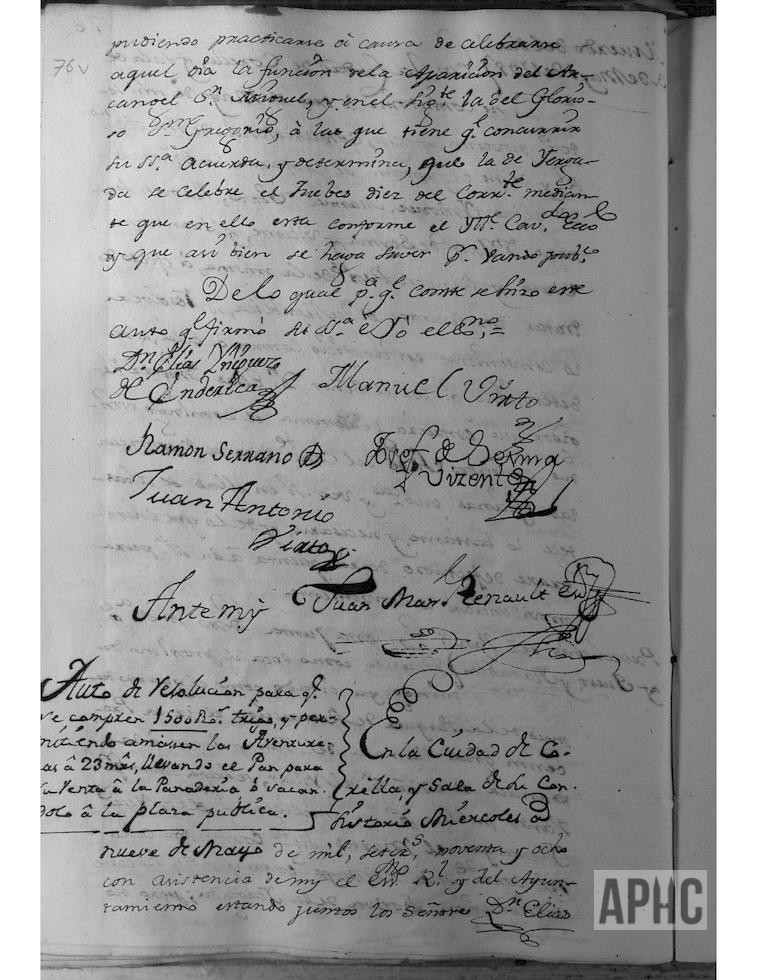 76v
pudiendo practicarse â causa de celebrarse
aquel dia la función dela Aparicion del Ar-
cangel Sn. Miguel, y en el sigte. la del Glorio-
so Sn. Gregorio, â las que tiene ql. concurrir
su Sª. acuerda, y determina, que la de Yerga
da se celebre el Juebes diez del Corrte. median-
te que en ello esta conforme el Ylle. Cav. Ecco
y que asi bien se haga saver Pr. Vando pubco.
De lo qual pª. ql. conste se hizo este
auto ql. firmó su Sª. è Yó el Esno.=
Dn. Elias Yñiguez
de Enderica
Manuel Virto
Ramon Serrano
Josef de Sesma
y Vizente
Juan Antonio
Virto
Antemy Juan Manl. Renault Esno
Auto de Resolucion para ql.
se compren 1500 Rs. trigo, y per-
mitiendo amassen las Aventure-
as â 23 mrs, llevando el Pan para
su Venta â la Panaderia ô sacan-
dolo â la plaza publica.
En la Ciudad de Co-
rella, y Sala de su Con-
sistorio Miércoles â
nueve de Mayo de mil, seters. noventa y ocho
con asistencia de my el Esno. Rl. y del Ayun-
tamiento estando juntos los Señores Dn. Elias
APHC